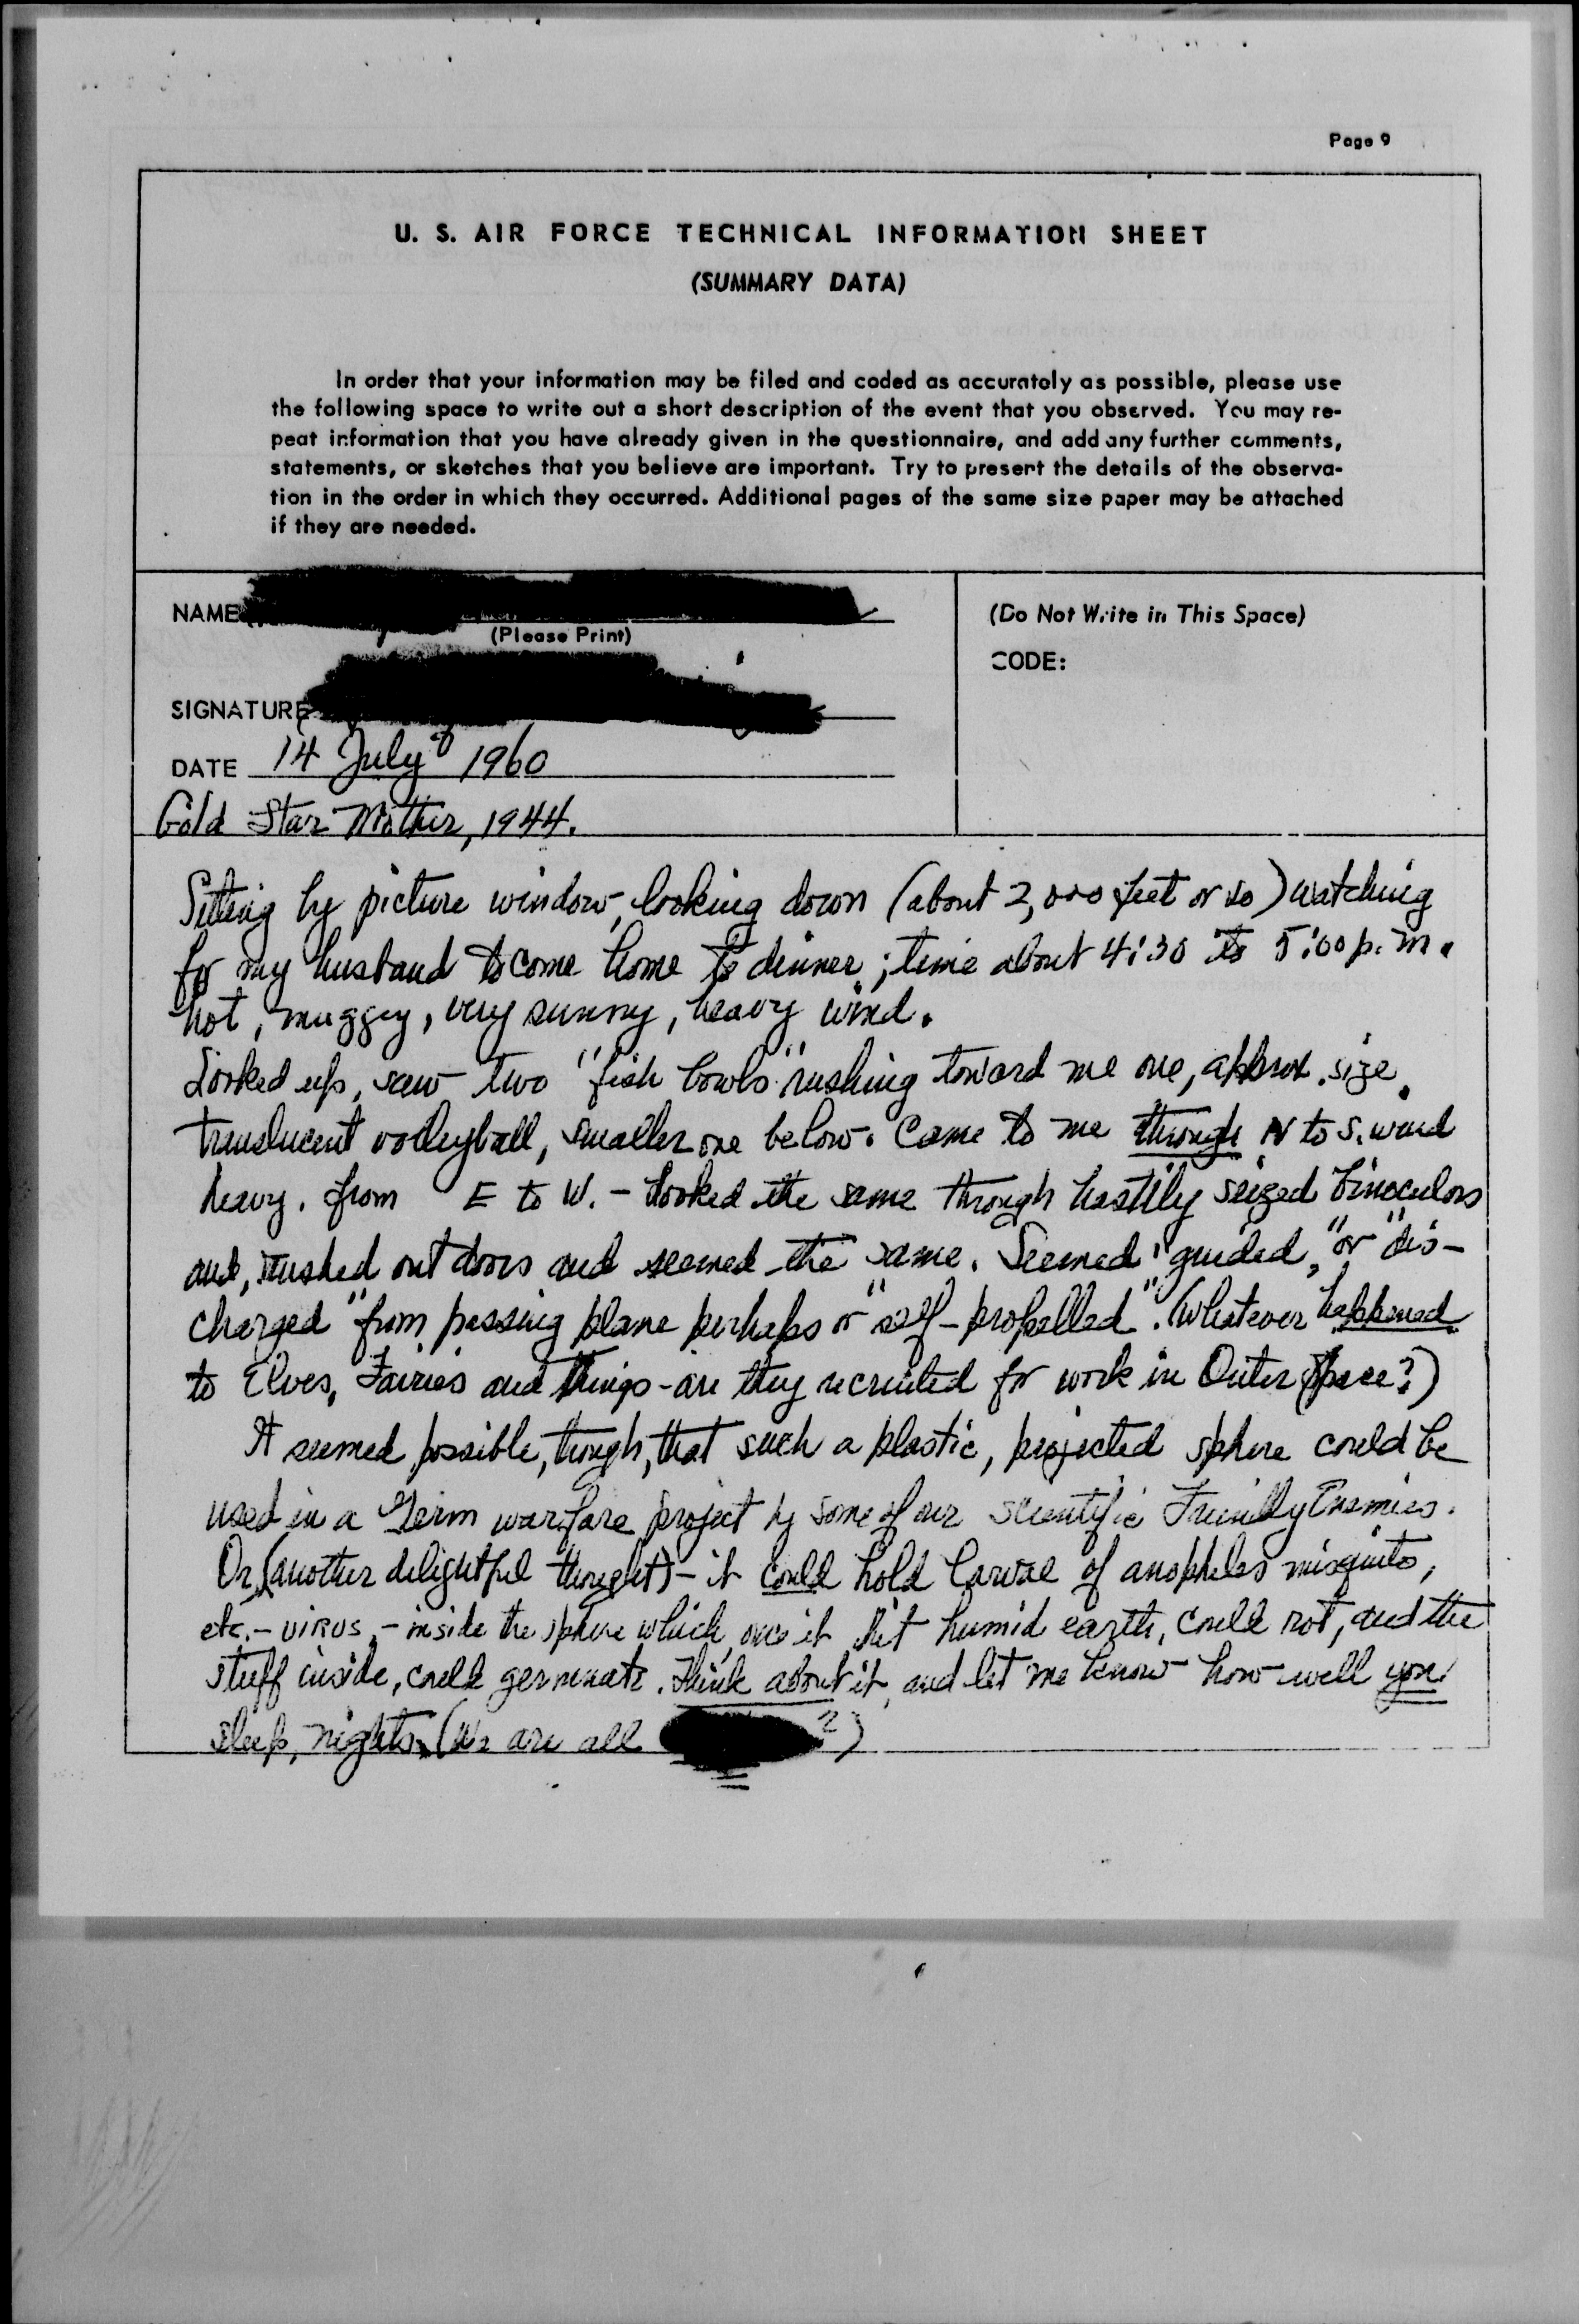 Page 9
U. S. AIR FORCE TECHNICAL INFORMATION SHEET
(SUMMARY DATA)
In order that your information may be filed and coded as accurately as possible, please use
the following space to write out a short description of the event that you observed. You may re-
peat information that you have already given in the questionnaire, and add any further comments,
statements, or sketches that you believe are important. Try to present the details of the observa-
tion in the order in which they occurred. Additional pages of the same size paper may be attached
if they are needed.
NAME
(Please Print)
(Do Not Write in This Space)
CODE:
SIGNATURE
DATE 14 July 1960
Gold Star Mother, 1944.
Sitting by picture window, looking down (about 2,000 feet or so) watching
for my husband to come home to dinner; time about 4:30 to 5:00 p.m.
hot, muggy, very sunny, heavy wind.
Looked up, saw two "fish bowls" rushing toward me one, approx. size
translucent volleyball, smaller one below. Came to me through N to S. wind
heavy. from E to W. - Looked the same through hastily seized binoculars
and, rushed outdoors and seemed the same. Seemed "guided," or "dis-
charged" from passing plane perhaps or "self-propelled". (Whatever happened
to Elves, Fairies and Things - are they recruited for work in Outer Space?)
It seemed possible, though, that such a plastic, projected sphere could be
used in a Germ warfare project by some of our scientific Friendly Enemies.
Or, (another delightful thought) - it could hold larvae of anopheles misquito,
etc. - virus, - inside the sphere which, once it hit humid earth, could rot, and the
stuff inside, could germinate. Think about it, and let me know how well you
sleep, nights. (We are all ?)